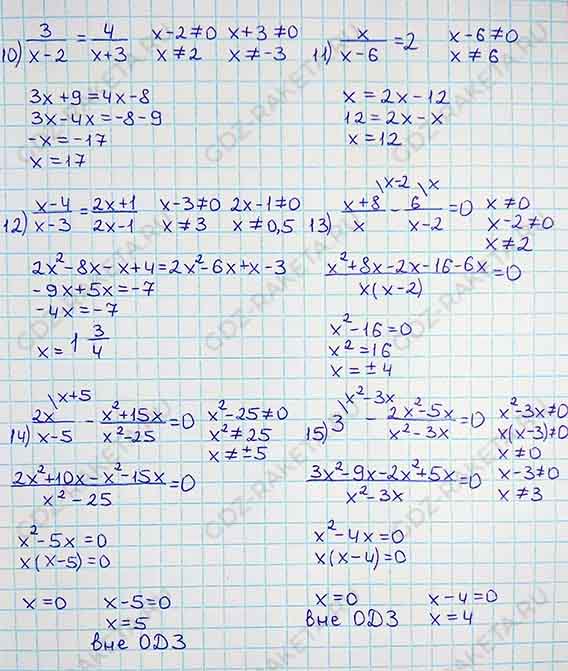 10) 3/(x-2) = 4/(x+3)   x-2≠0   x+3≠0
x≠2   x≠-3
3x+9=4x-8
3x-4x=-8-9
-x=-17
x=17
11) x/(x-6) =2   x-6≠0
x≠6
x=2x-12
12=2x-x
x=12
12) (x-4)/(x-3) = (2x+1)/(2x-1)   x-3≠0   2x-1≠0
x≠3   x≠0,5
2x²-8x-x+4=2x²-6x+x-3
-9x+5x=-7
-4x=-7
x=1 3/4
13) (x+8)/x \x-2 - 6/(x-2) \x =0   x≠0
x-2≠0
x≠2
(x²+8x-2x-16-6x)/(x(x-2)) =0
x²-16=0
x²=16
x=±4
14) 2x/(x-5) \x+5 - (x²+15x)/(x²-25) =0   x²-25≠0
x²≠25
x≠±5
(2x²+10x-x²-15x)/(x²-25) =0
x²-5x=0
x(x-5)=0
x=0   x-5=0
x=5
вне ОДЗ
15) 3 \x²-3x - (2x²-5x)/(x²-3x) =0   x²-3x≠0
x(x-3)≠0
x≠0
x-3≠0
x≠3
(3x²-9x-2x²+5x)/(x²-3x) =0
x²-4x=0
x(x-4)=0
x=0   x-4=0
вне ОДЗ   x=4
GDZ-RAKETA.RU